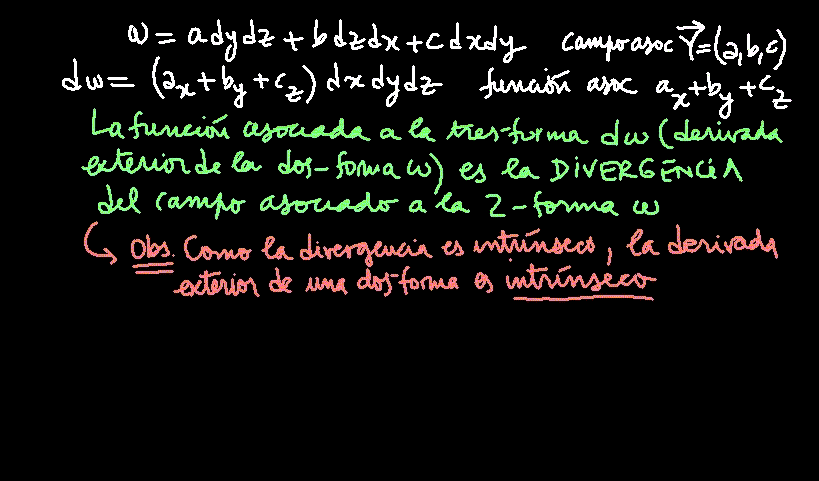 ω = a dy dz + b dz dx + c dx dy campo asoc Y⃗ = (a, b, c)
dω = (a_x + b_y + c_z) dx dy dz función asoc a_x + b_y + c_z
La función asociada a la tres-forma dω (derivada
exterior de la dos-forma ω) es la DIVERGENCIA
del campo asociado a la 2-forma ω
↳ Obs. Como la divergencia es intrínseco, la derivada
exterior de una dos-forma es intrínseco